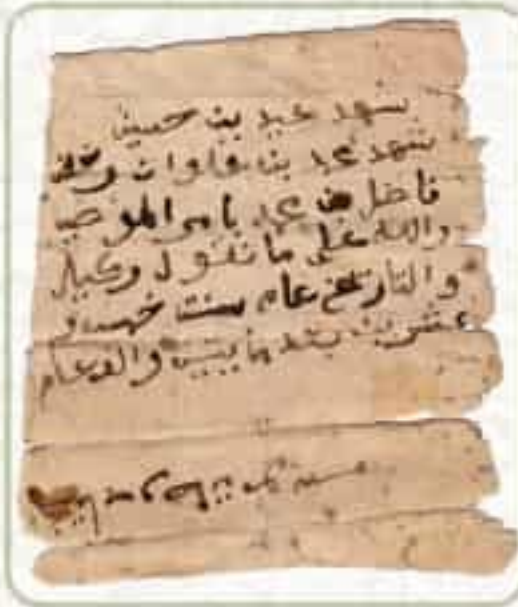 يشهد عيد بن حسين
يشهد عيد بن علوان وكتب
فاضل بن عيد بامر الموصي
والله على ما نقول وكيل
والتاريخ عام سنت خمس و
عشرين بعد مايتين والف عام